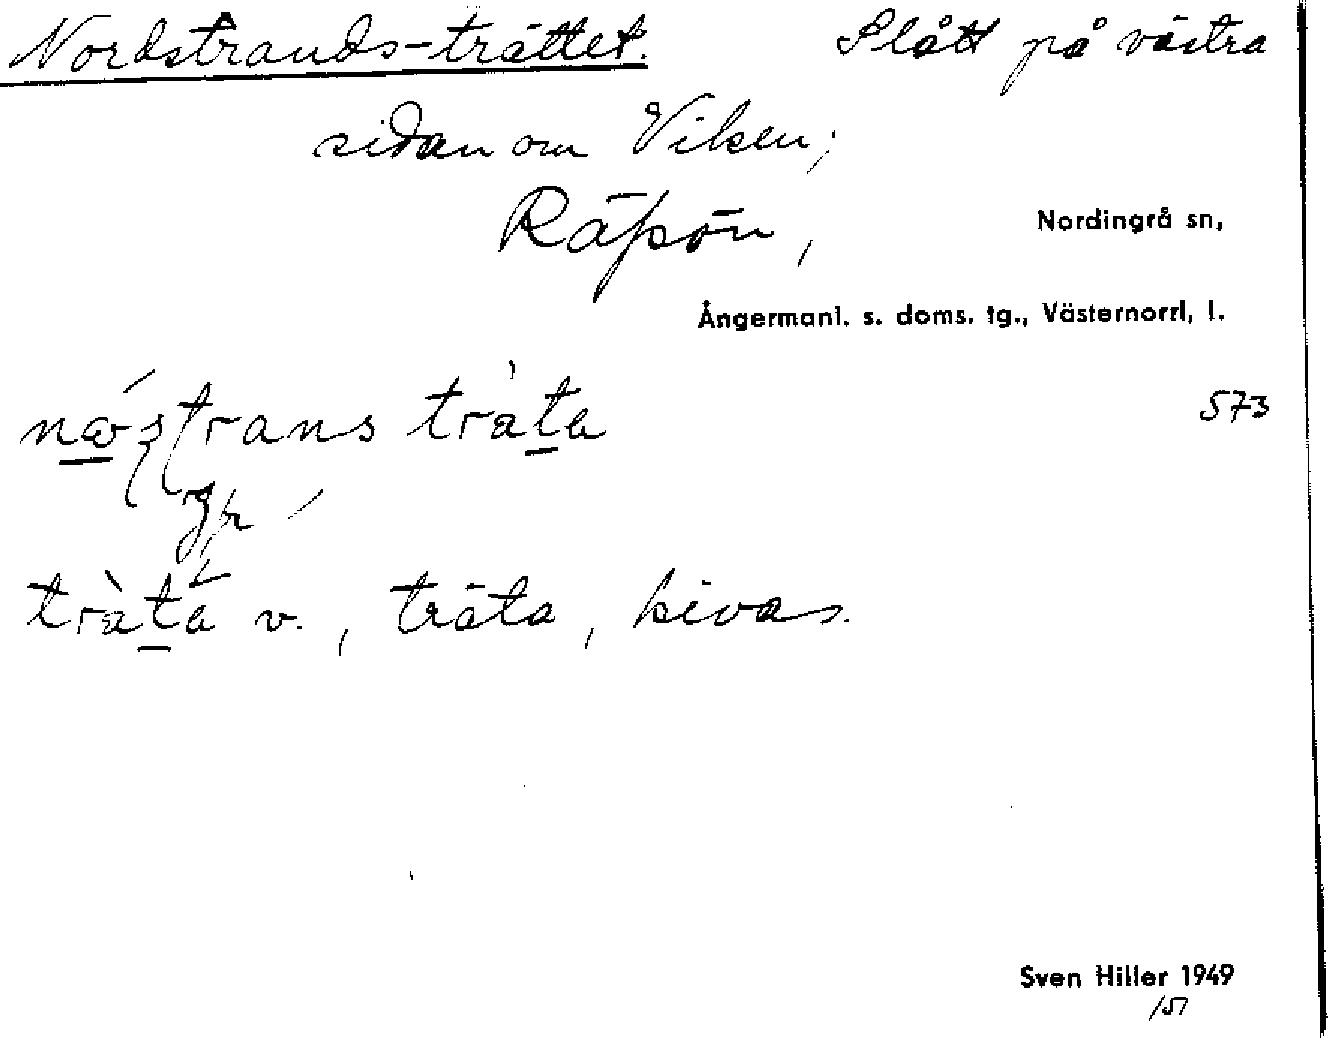 Nordstrands-trättet. Slått på västra
sidan om Viksen;
Räpön, Nordingrå sn,
Ångermanl. s. doms. tg., Västernorrl, l.
strans träta 573
träta v., träta, kivas.
Sven Hiller 1949
/51